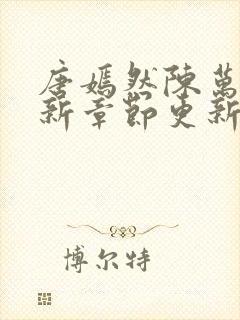 唐嫣然陳萬
新章節更新
博尔特